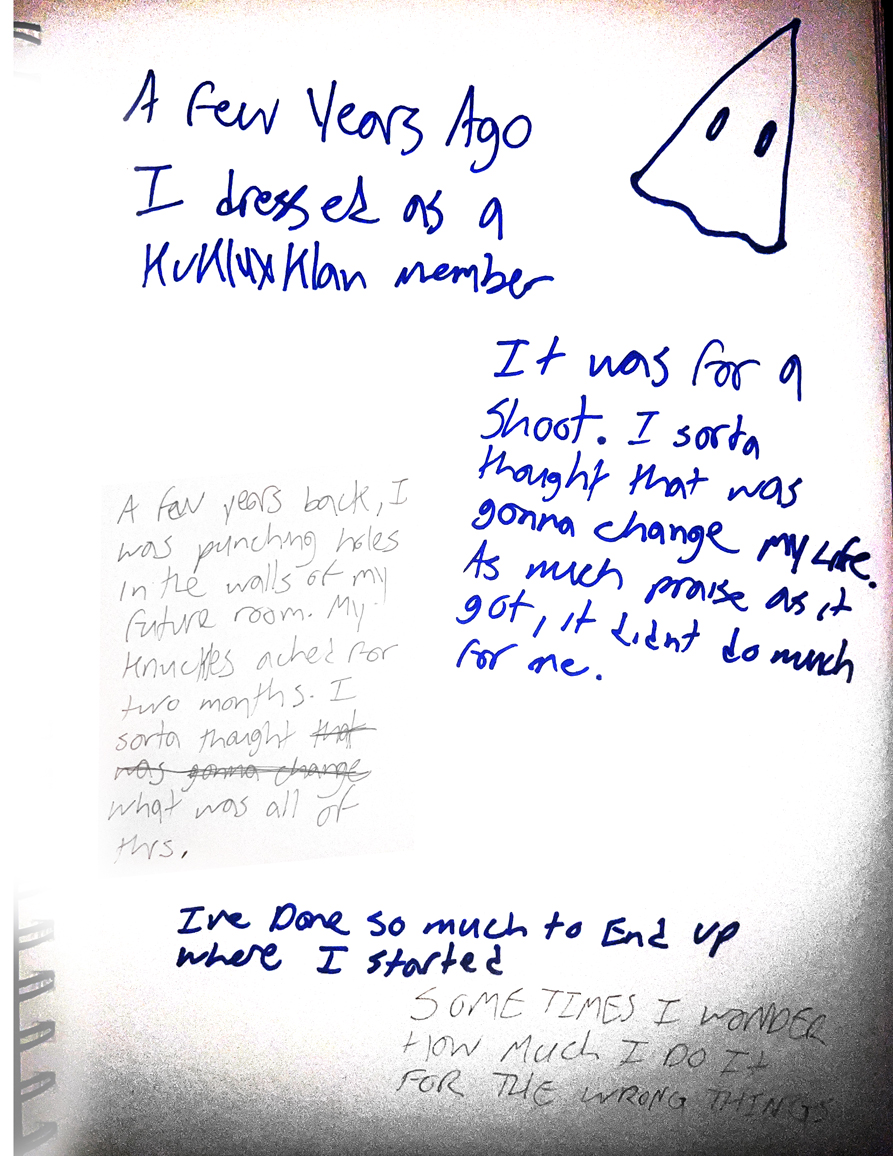 A Few Years Ago
I dressed as a
KuKluxKlan member
It was for a
shoot. I sorta
thought that was
gonna change my Life.
As much praise as it
got, it didnt do much
for me.
A few years back, I
was punching holes
in the walls of my
future room. My
knuckles ached for
two months. I
sorta thought that
was gonna change
what was all of
this.
I've Done so much to End up
where I started
SOMETIMES I WONDER
HOW MUCH I DO It
FOR THE WRONG THINGS